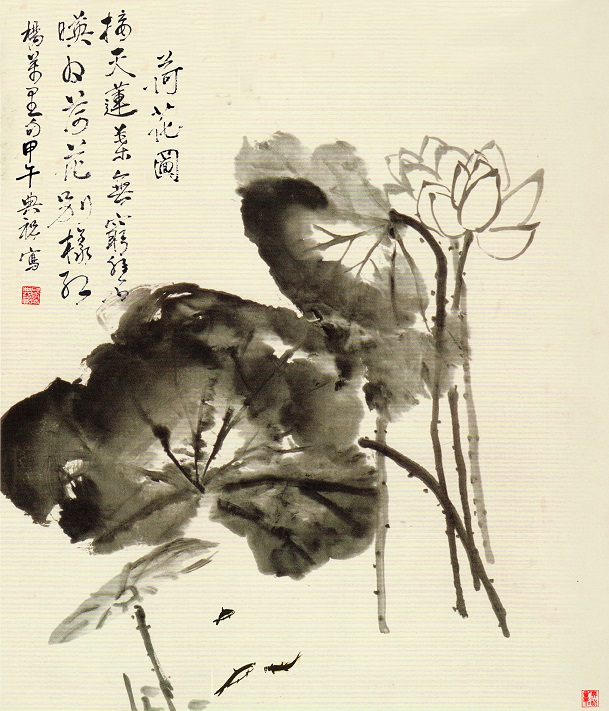 荷花圖
接天蓮葉無窮碧
暎日荷花別樣紅
楊萬里句甲午典裕寫